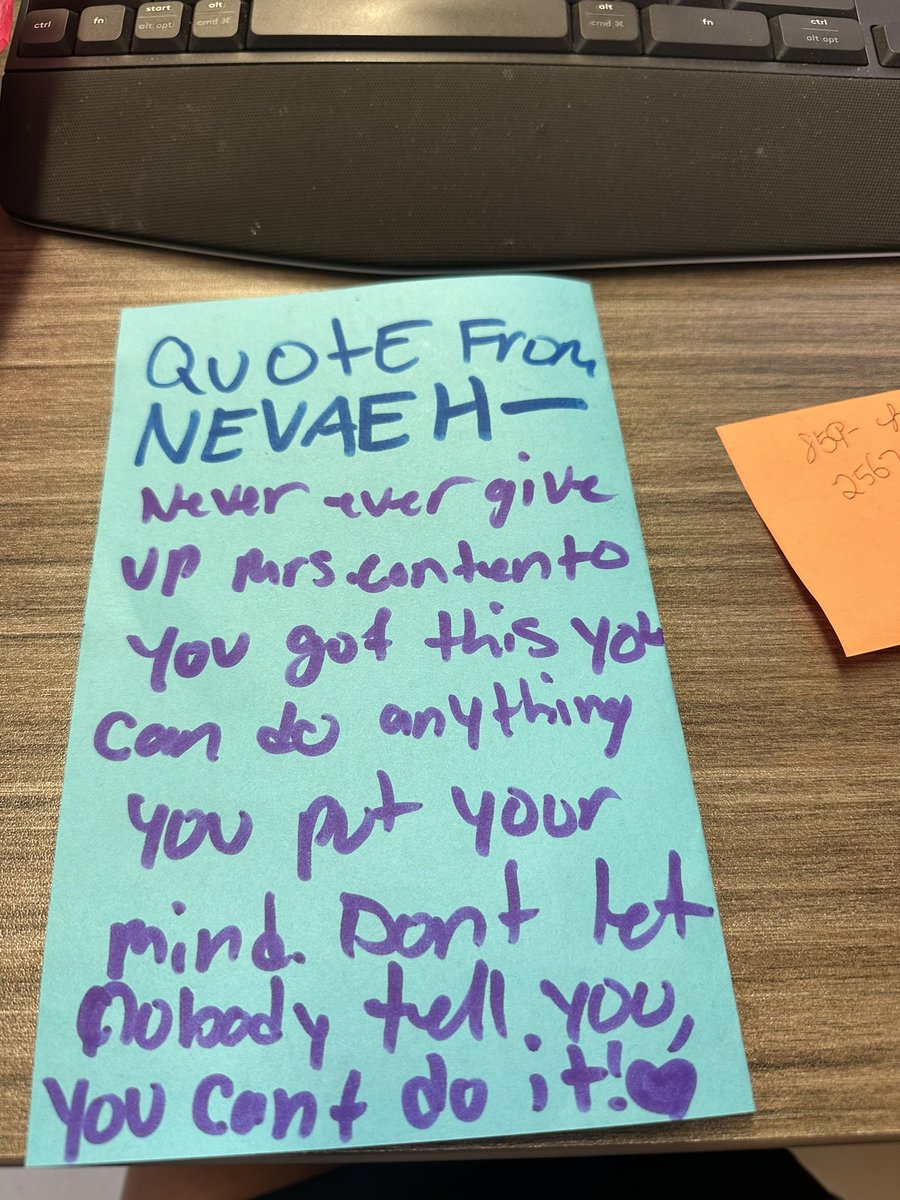 ctrl fn start alt opt alt cmd ⌘ alt cmd ⌘ fn ctrl alt opt
QUOTE From
NEVAEH—
Never ever give
up Mrs.contento
you got this you
can do anything
you put your
mind. Dont let
Nobody tell you,
you cant do it!♥
859-
2567